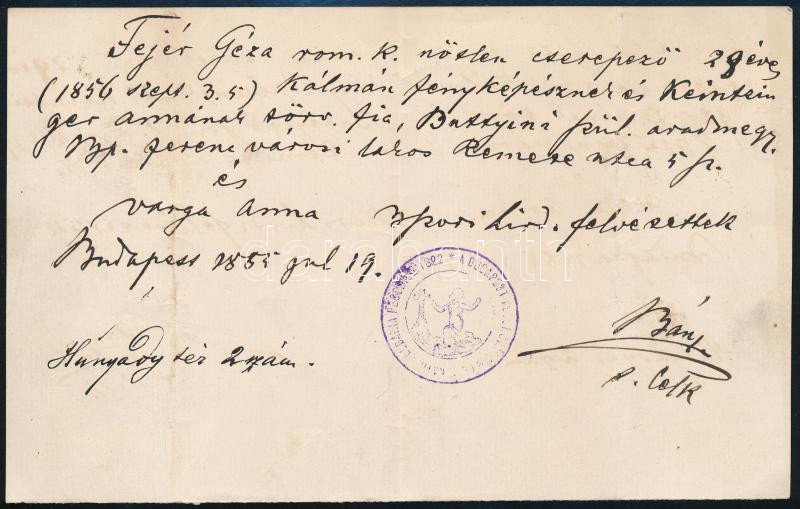 Fejér Géza rom. k. nőtlen cserepező 29 éves
(1856 szept. 3. 5) Kálmán fényképésznek és Keintzin
ger annának törv. fia, Buttyini szül. aradmegy.
Bp. ferencvárosi lakos Remete utca 5 sz.
és
varga anna kihird. felvétettek
Budapest 1855 jul 19.
Hunyady tér 2 szám.
darabanth
1822 * A BUDAPEST
s. lelk